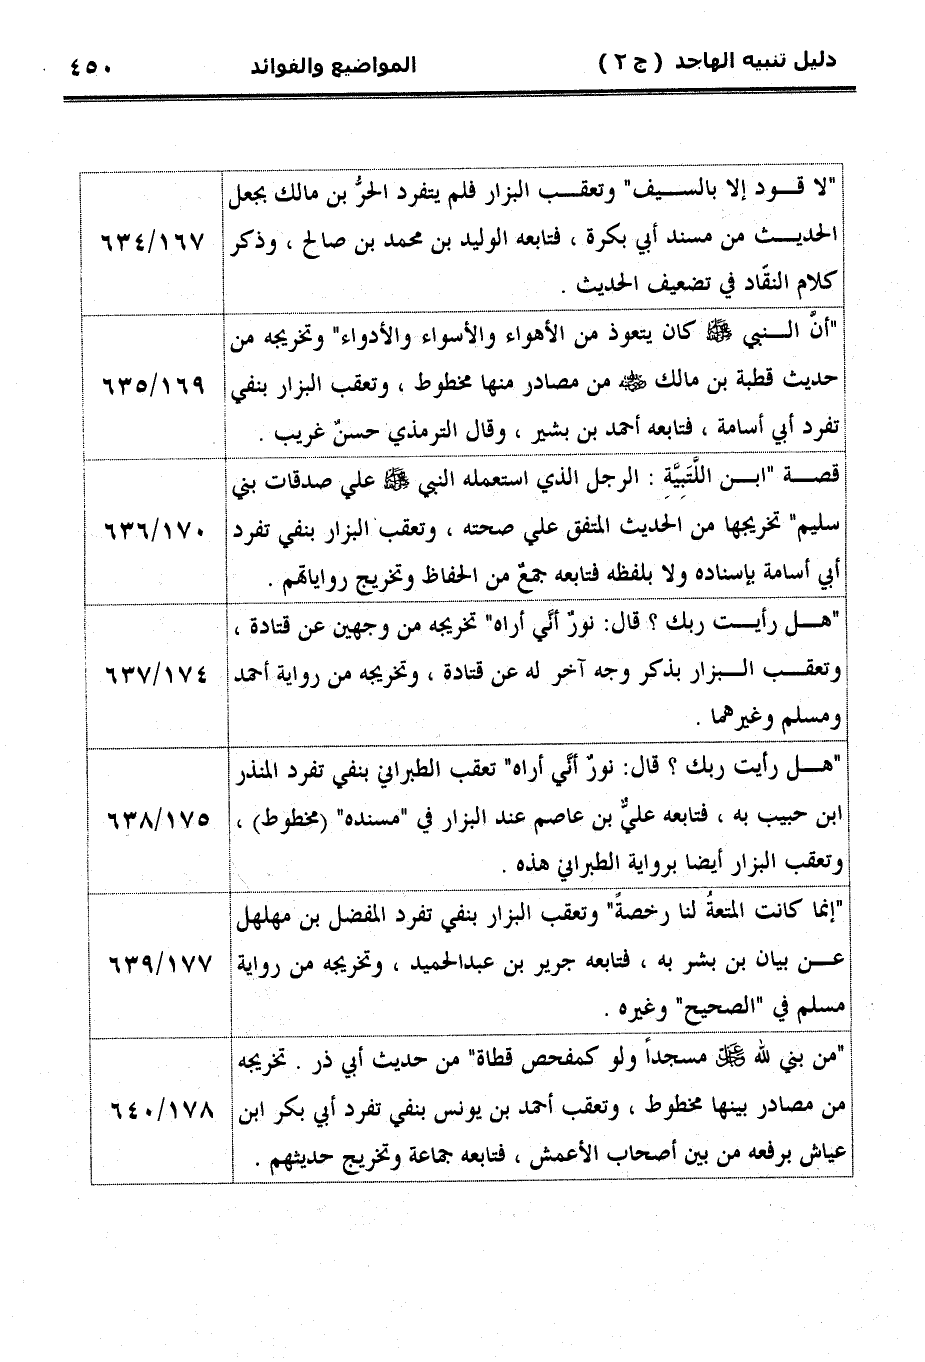 دليل تنبيه الهاجد ( ج ٢ ) المواضيع والفوائد ٤٥٠
"لا قـود إلا بالسـيف" وتعقـب البزار فلم يتفرد الحرُّ بن مالك بجعل
الحديـث من مسند أبي بكرة ، فتابعه الوليد بن محمد بن صالح ، وذكر
كلام النقّاد في تضعيف الحديث .
٦٣٤/١٦٧
"أنَّ النـبي ﷺ كان يتعوذ من الأهواء والأسواء والأدواء" وتخريجه من
حديث قطبة بن مالك ﵁ من مصادر منها مخطوط ، وتعقب البزار بنفي
تفرد أبي أسامة ، فتابعه أحمد بن بشير ، وقال الترمذي حسنٌ غريب .
٦٣٥/١٦٩
قصـة "ابـن اللَّتبِيَّةِ : الرجل الذي استعمله النبي ﷺ علي صدقات بني
سليم" تخريجها من الحديث المتفق علي صحته ، وتعقب البزار بنفي تفرد
أبي أسامة بإسناده ولا بلفظه فتابعه جمعٌ من الحفاظ وتخريج رواياتهم .
٦٣٦/١٧٠
"هـل رأيـت ربك ؟ قال: نورٌ أنَّي أراه" تخريجه من وجهين عن قتادة ،
وتعقـب الـبزار بذكر وجه آخر له عن قتادة ، وتخريجه من رواية أحمد
ومسلم وغيرهما .
٦٣٧/١٧٤
"هـل رأيت ربك ؟ قال: نورٌ أنَّي أراه" تعقب الطبراني بنفي تفرد المنذر
ابن حبيب به ، فتابعه عليٌّ بن عاصم عند البزار في "مسنده" (مخطوط) ،
وتعقب البزار أيضا برواية الطبراني هذه .
٦٣٨/١٧٥
"إنما كانت المتعةُ لنا رخصةً" وتعقب البزار بنفي تفرد المفضل بن مهلهل
عـن بيان بن بشر به ، فتابعه جرير بن عبدالحميد ، وتخريجه من رواية
مسلم في "الصحيح" وغيره .
٦٣٩/١٧٧
"من بني لله ﷿ مسجداً ولو كمفحص قطاة" من حديث أبي ذر . تخريجه
من مصادر بينها مخطوط ، وتعقب أحمد بن يونس بنفي تفرد أبي بكر ابن
عياش برفعه من بين أصحاب الأعمش ، فتابعه جماعة وتخريج حديثهم .
٦٤٠/١٧٨